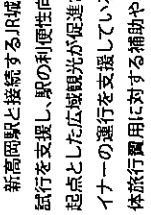 新高岡駅と接続するJR城
試行を支援し、駅の利便性向
起点とした広域観光が促進
イナーの運行を支援してい
体旅行費用に対する補助や